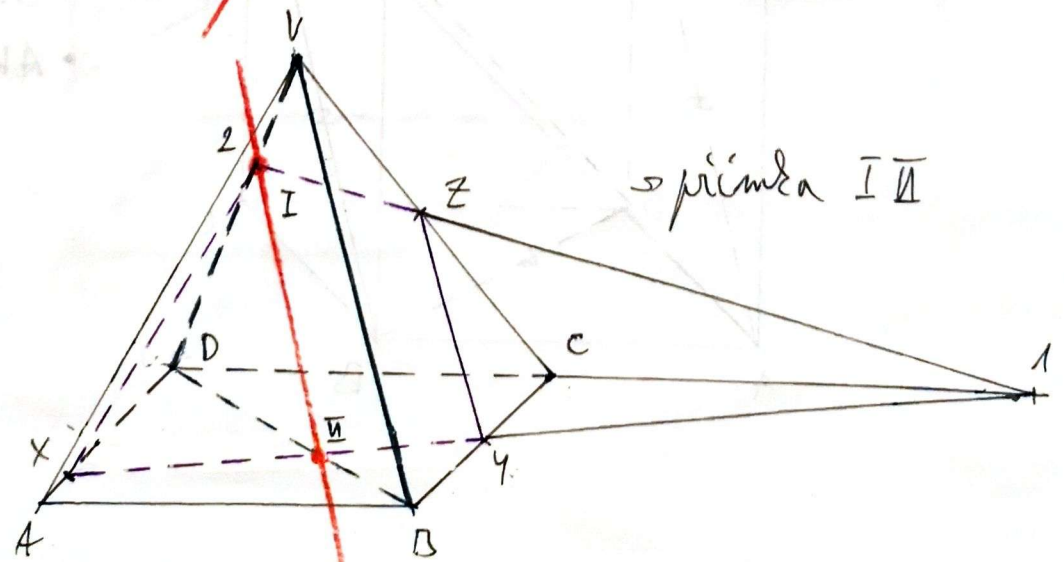 V
2
I
Z
→ přímka I II
D
C
1
X
II
Y
A
B